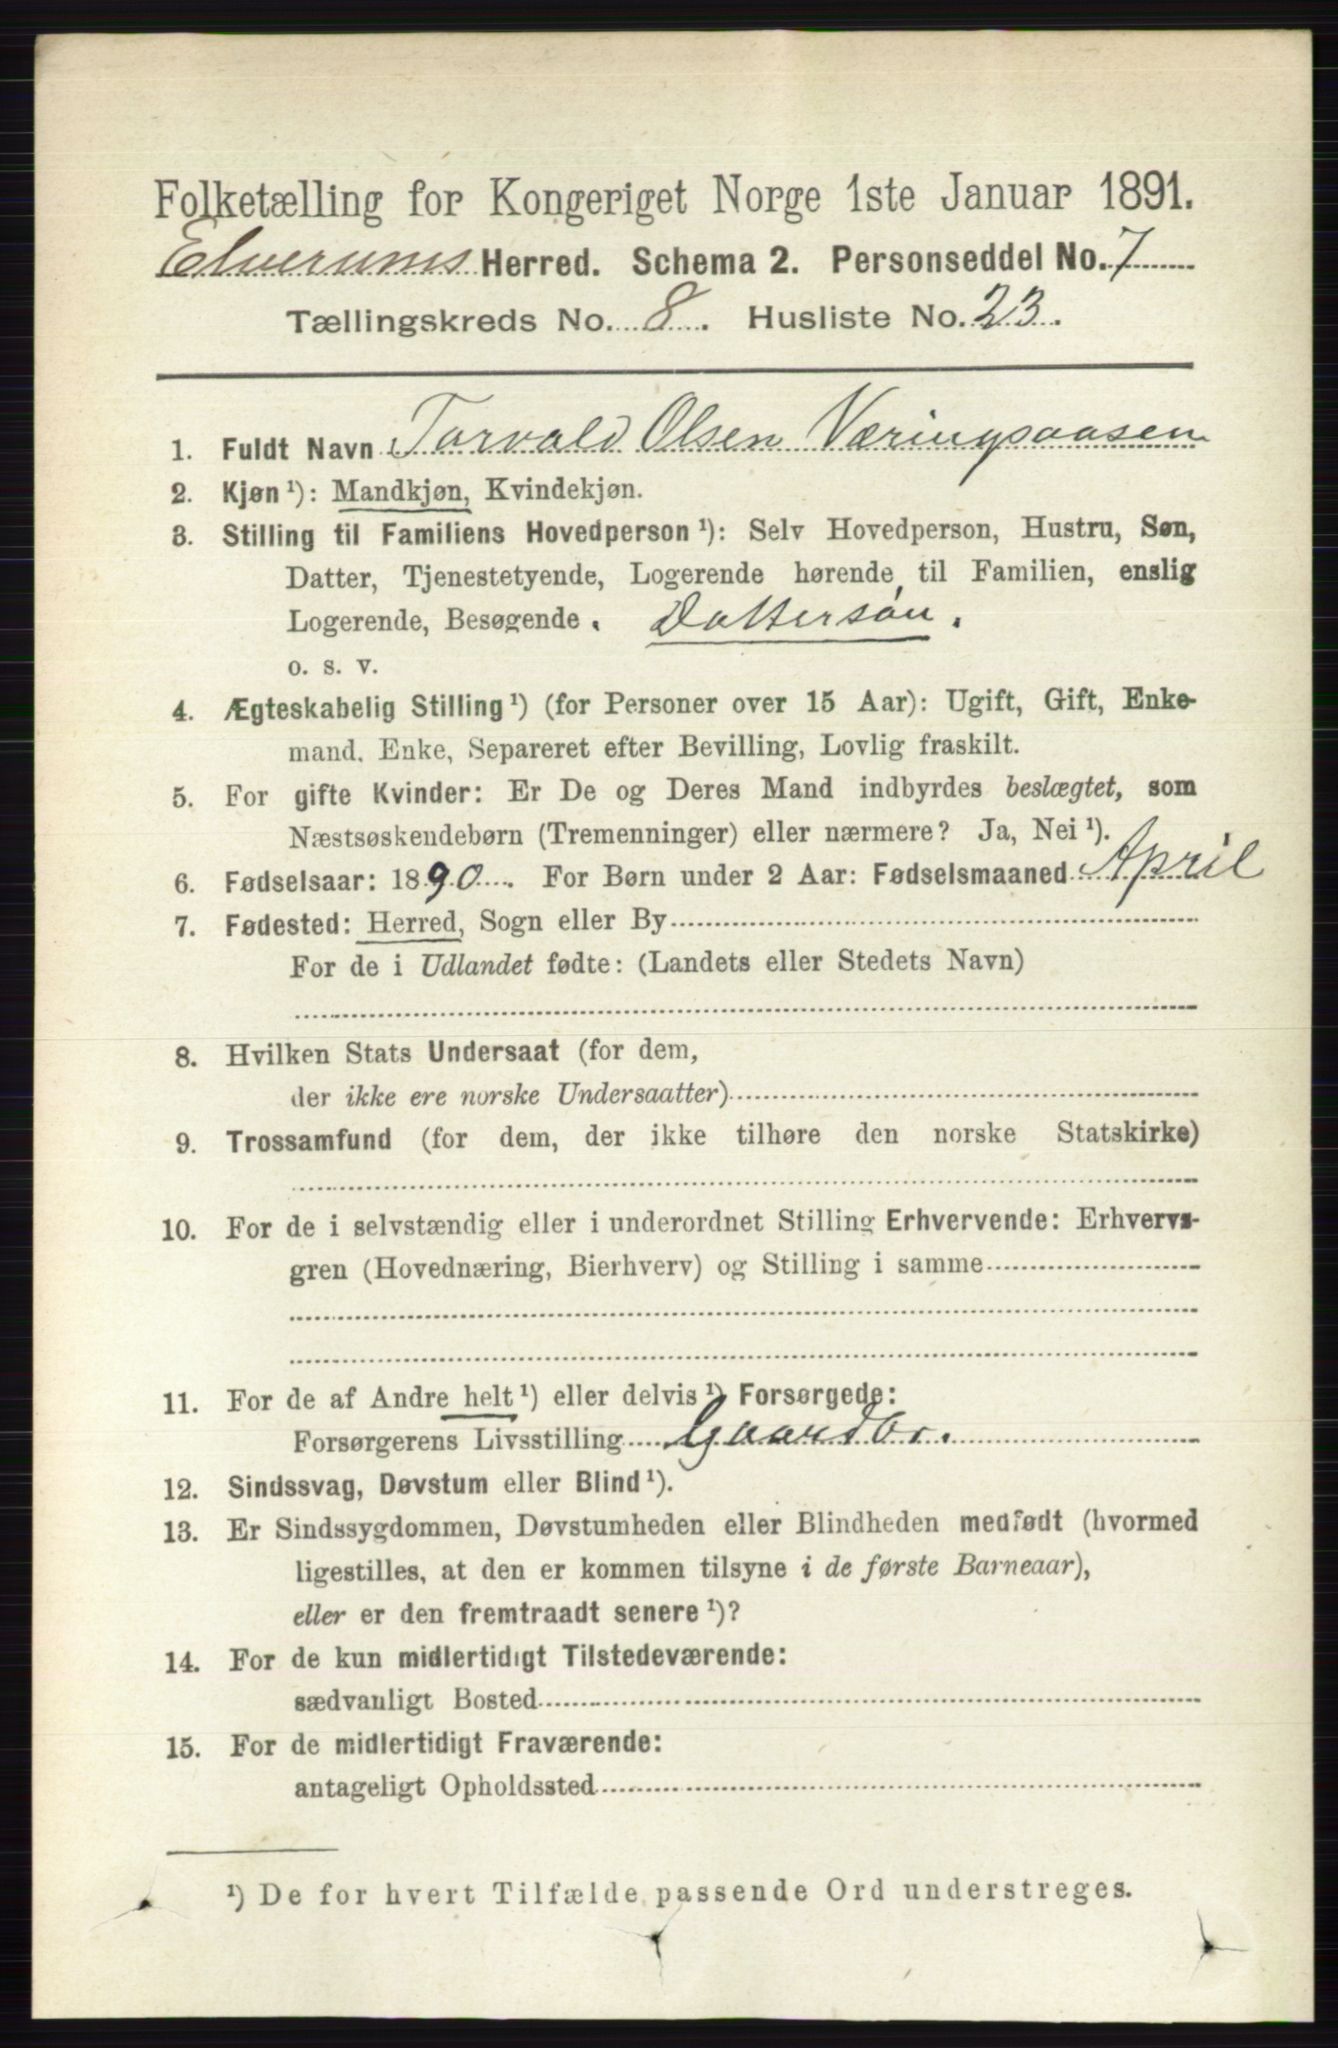 Folketælling for Kongeriget Norge 1ste Januar 1891.
Elverums Herred. Schema 2. Personseddel No. 7
Tællingskreds No. 8. Husliste No. 23.
1. Fuldt Navn Torvald Olsen Væringsaasen
2. Kjøn ¹): Mandkjøn, Kvindekjøn.
3. Stilling til Familiens Hovedperson ¹): Selv Hovedperson, Hustru, Søn,
Datter, Tjenestetyende, Logerende hørende til Familien, enslig
Logerende, Besøgende. Dattersøn.
o. s. v.
4. Ægteskabelig Stilling ¹) (for Personer over 15 Aar): Ugift, Gift, Enke-
mand, Enke, Separeret efter Bevilling, Lovlig fraskilt.
5. For gifte Kvinder: Er De og Deres Mand indbyrdes beslægtet, som
Næstsøskendebørn (Tremenninger) eller nærmere? Ja, Nei ¹).
6. Fødselsaar: 1890. For Børn under 2 Aar: Fødselsmaaned April
7. Fødested: Herred, Sogn eller By
For de i Udlandet fødte: (Landets eller Stedets Navn)
8. Hvilken Stats Undersaat (for dem,
der ikke ere norske Undersaatter)
9. Trossamfund (for dem, der ikke tilhøre den norske Statskirke)
10. For de i selvstændig eller i underordnet Stilling Erhvervende: Erhvervs-
gren (Hovednæring, Bierhverv) og Stilling i samme
11. For de af Andre helt ¹) eller delvis ¹) Forsørgede:
Forsørgerens Livsstilling Gaardbr.
12. Sindssvag, Døvstum eller Blind ¹).
13. Er Sindssygdommen, Døvstumheden eller Blindheden medfødt (hvormed
ligestilles, at den er kommen tilsyne i de første Barneaar),
eller er den fremtraadt senere ¹)?
14. For de kun midlertidigt Tilstedeværende:
sædvanligt Bosted
15. For de midlertidigt Fraværende:
antageligt Opholdssted
¹) De for hvert Tilfælde passende Ord understreges.